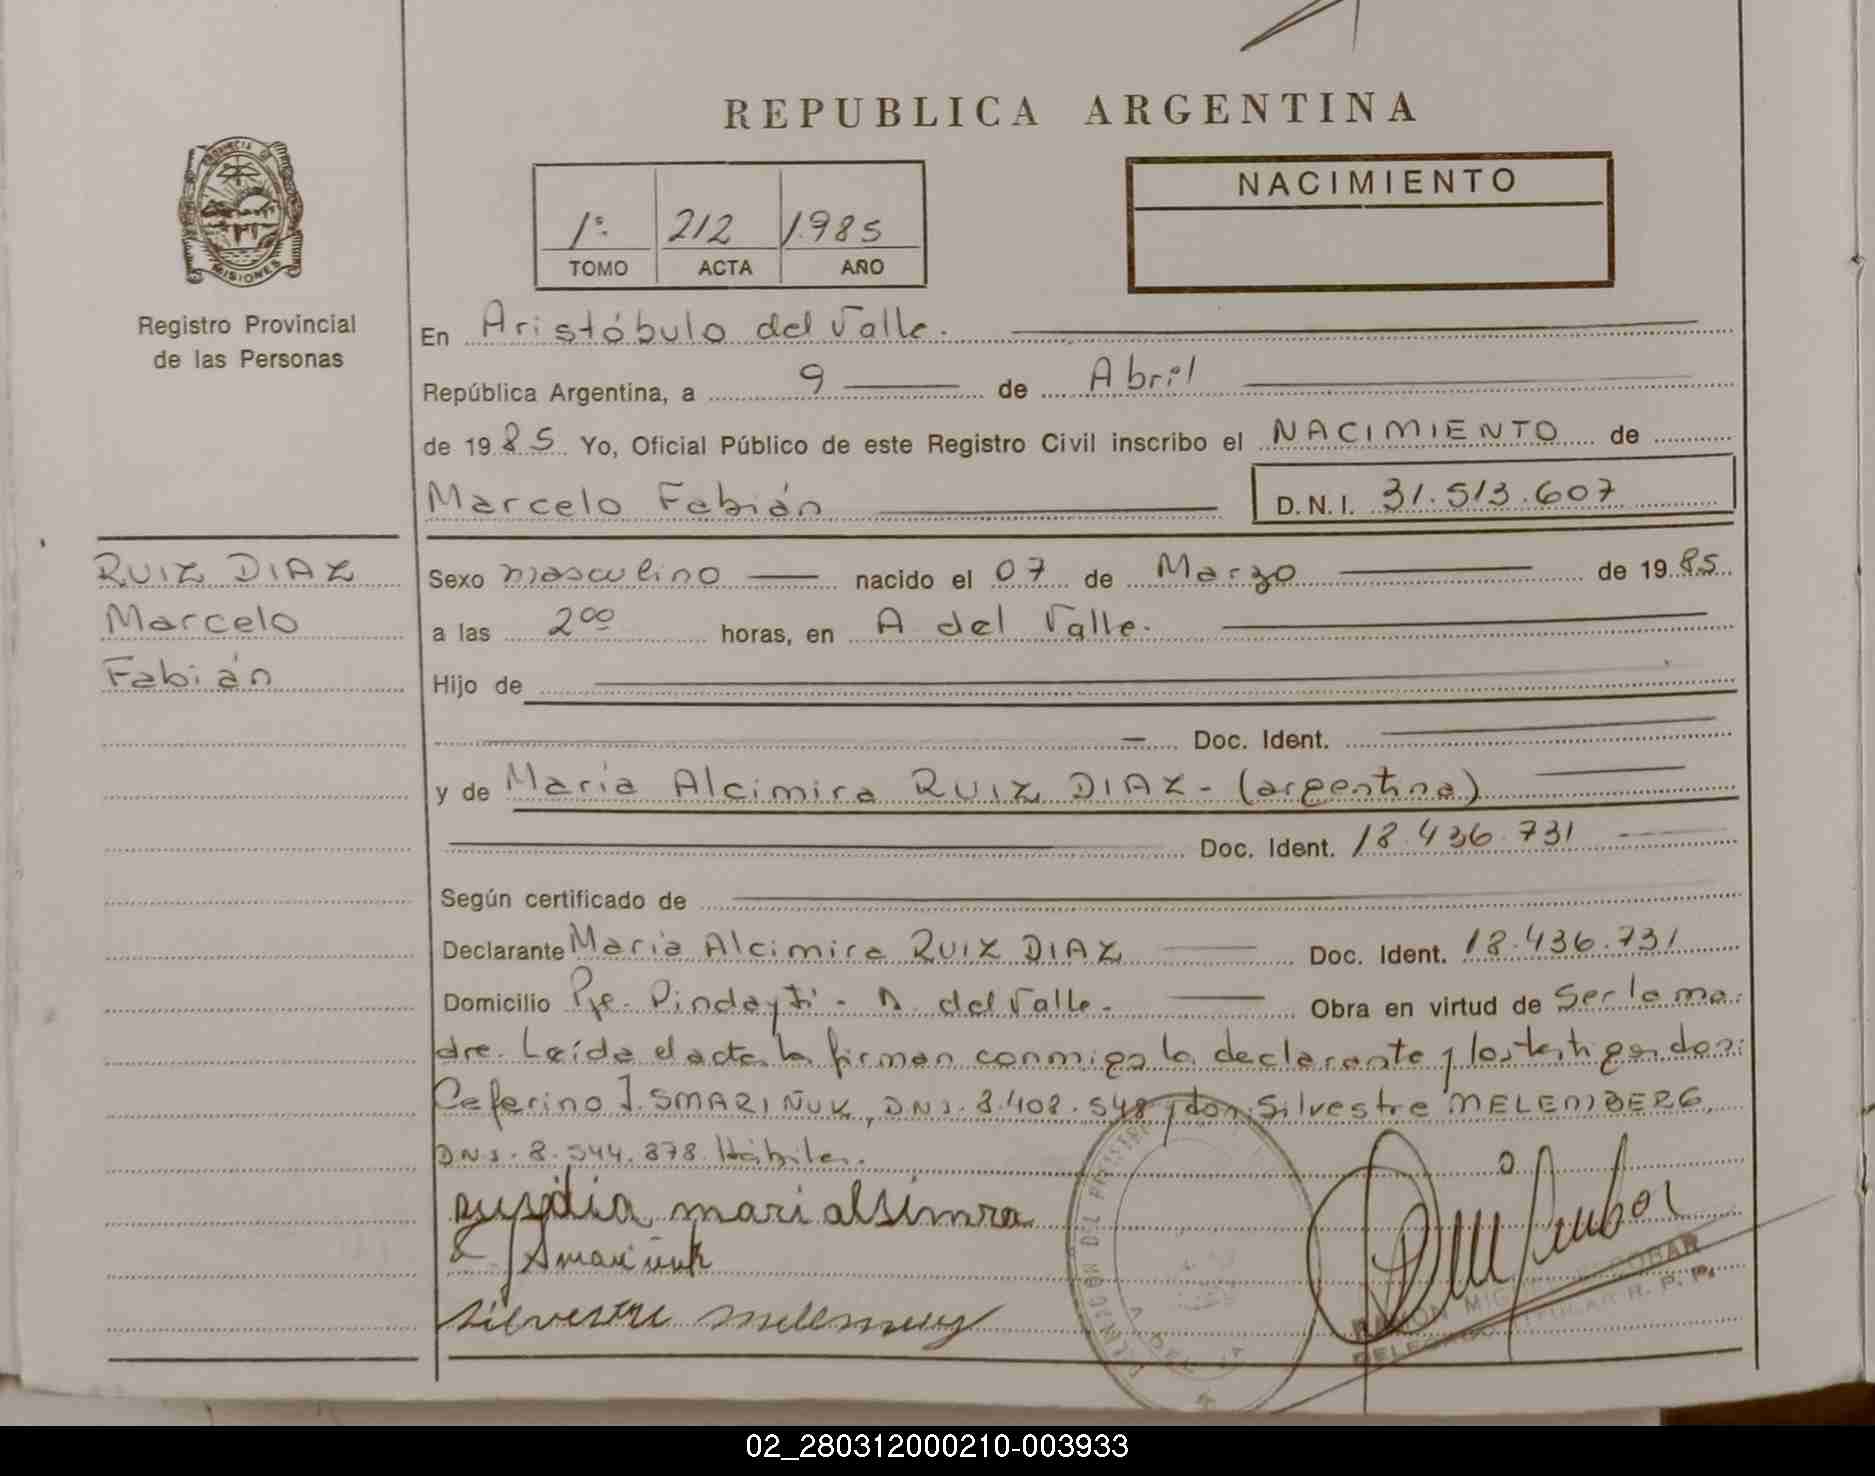 REPUBLICA ARGENTINA
PROVINCIA D
MISIONES
Registro Provincial
de las Personas
1º 212 1.985
TOMO ACTA AÑO
NACIMIENTO
En Aristóbulo del Valle.
República Argentina, a 9 de Abril
de 1985 Yo, Oficial Público de este Registro Civil inscribo el NACIMIENTO de
Marcelo Fabián D.N.I. 31.513.607
RUIZ DIAZ
Marcelo
Fabián
Sexo masculino nacido el 07 de Marzo de 1985
a las 2 00 horas, en A del Valle.
Hijo de
Doc. Ident.
y de Maria Alcimira RUIZ DIAZ - (argentina)
Doc. Ident. 18.436.731
Según certificado de
Declarante Maria Alcimira RUIZ DIAZ Doc. Ident. 18.436.731
Domicilio Pje. Pindayti - A. del Valle. Obra en virtud de Ser la ma-
dre. Leída el acta la firman conmigo la declarante y los testigos don:
Ceferino J. SMARIÑUK, DNI. 8.408.548 y don: Silvestre MELEMBERG,
DNI. 8.544.878. Hábiles.
mari alsimra
Smariñuk
silvestre
RAMON ESCOBAR
R. P. P.
02_280312000210-003933